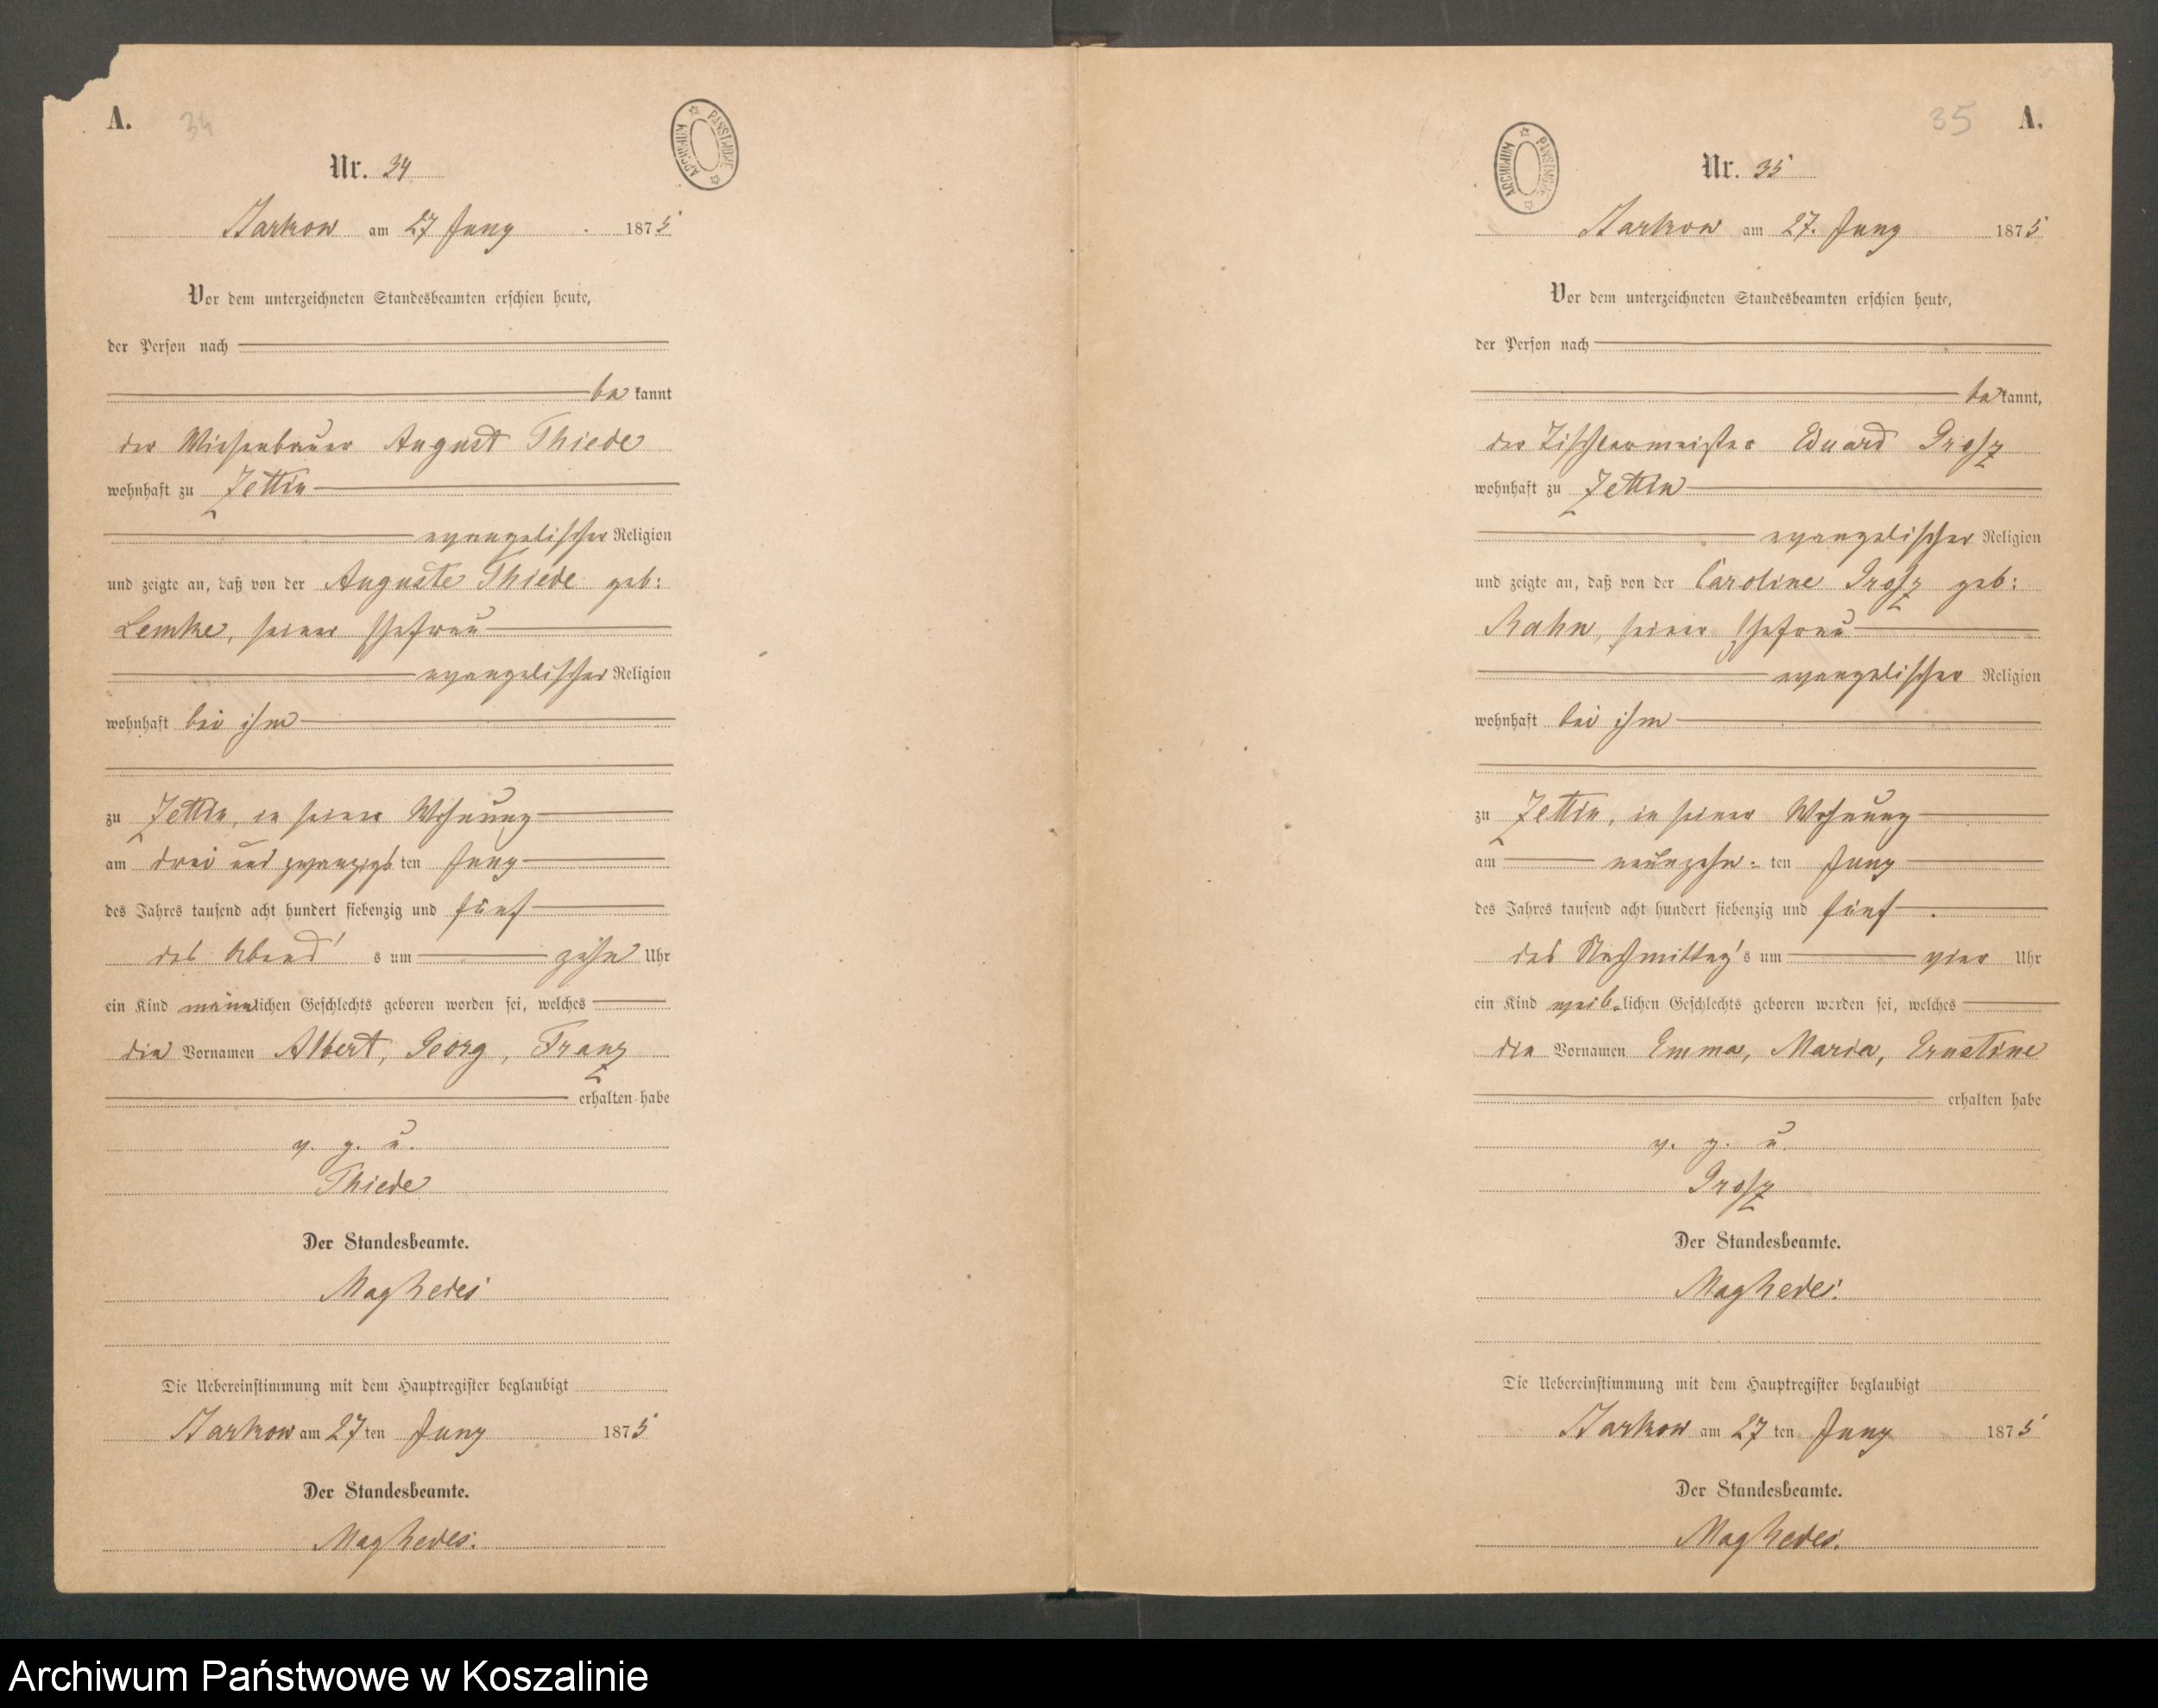 A. 34
ARCHIWUM PAŃSTWOWE
Nr. 34
Barkow am 27 Juny 1875
Vor dem unterzeichneten Standesbeamten erschien heute,
der Person nach
be kannt
der Wiesenbauer August Thiede
wohnhaft zu Zettin
evangelischer Religion
und zeigte an, daß von der Auguste Thiede geb:
Lemke, seiner Ehefrau
evangelischer Religion
wohnhaft bei ihm
zu Zettin, in seiner Wohnung
am drei und zwanzigs ten Juny
des Jahres tausend acht hundert siebenzig und fünf
des Abend' s um zehn Uhr
ein Kind männlichen Geschlechts geboren worden sei, welches
die Vornamen Albert, Georg, Franz
erhalten habe
v. g. u.
Thiede
Der Standesbeamte.
Die Uebereinstimmung mit dem Hauptregister beglaubigt
Barkow am 27 ten Juny 1875
Der Standesbeamte.
35 A.
ARCHIWUM PAŃSTWOWE
Nr. 35
Barkow am 27. Juny 1875
Vor dem unterzeichneten Standesbeamten erschien heute,
der Person nach
be kannt,
der Tischlermeister Eduard Grosz
wohnhaft zu Zettin
evangelischer Religion
und zeigte an, daß von der Caroline Grosz geb:
Rahn, seiner Ehefrau
evangelischer Religion
wohnhaft bei ihm
zu Zettin, in seiner Wohnung
am neunzehn- ten Juny
des Jahres tausend acht hundert siebenzig und fünf
des Nachmittag's um vier Uhr
ein Kind weib-lichen Geschlechts geboren worden sei, welches
die Vornamen Emma, Maria, Ernstine
erhalten habe
v. g. u.
Grosz
Der Standesbeamte.
Die Uebereinstimmung mit dem Hauptregister beglaubigt
Barkow am 27 ten Juny 1875
Der Standesbeamte.
Archiwum Państwowe w Koszalinie